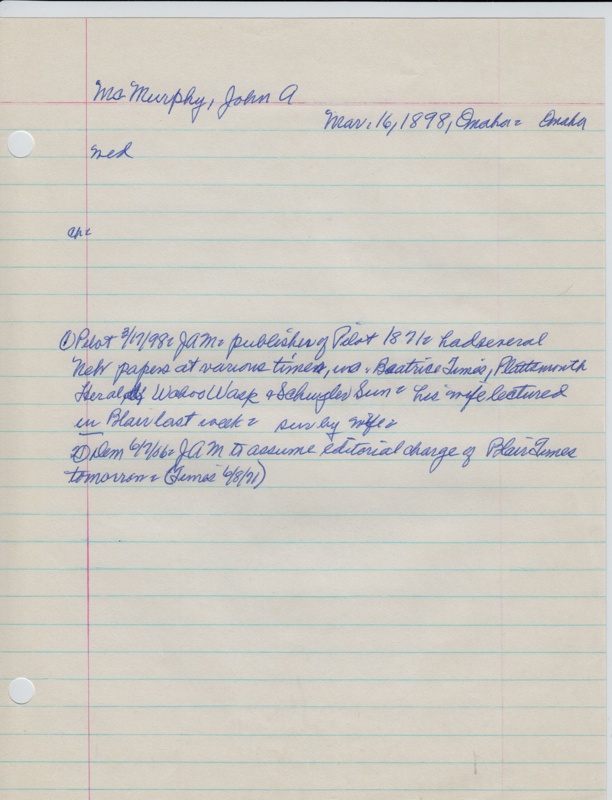 McMurphy, John A
Mar. 16, 1898, Omaha = Omaha
med
ch=
① Pilot 3/17/98= JAM= publisher of Pilot 1871= had several
Neb papers at various times, ins. Beatrice Times, Plattsmouth
Herald, Wahoo Wasp & Schuyler Sun= his wife lectured
in Blair last week= sur by wife=
② Dem 6/7/06= JAM to assume editorial charge of Blair Times
tomorrow= (Times 6/8/71)